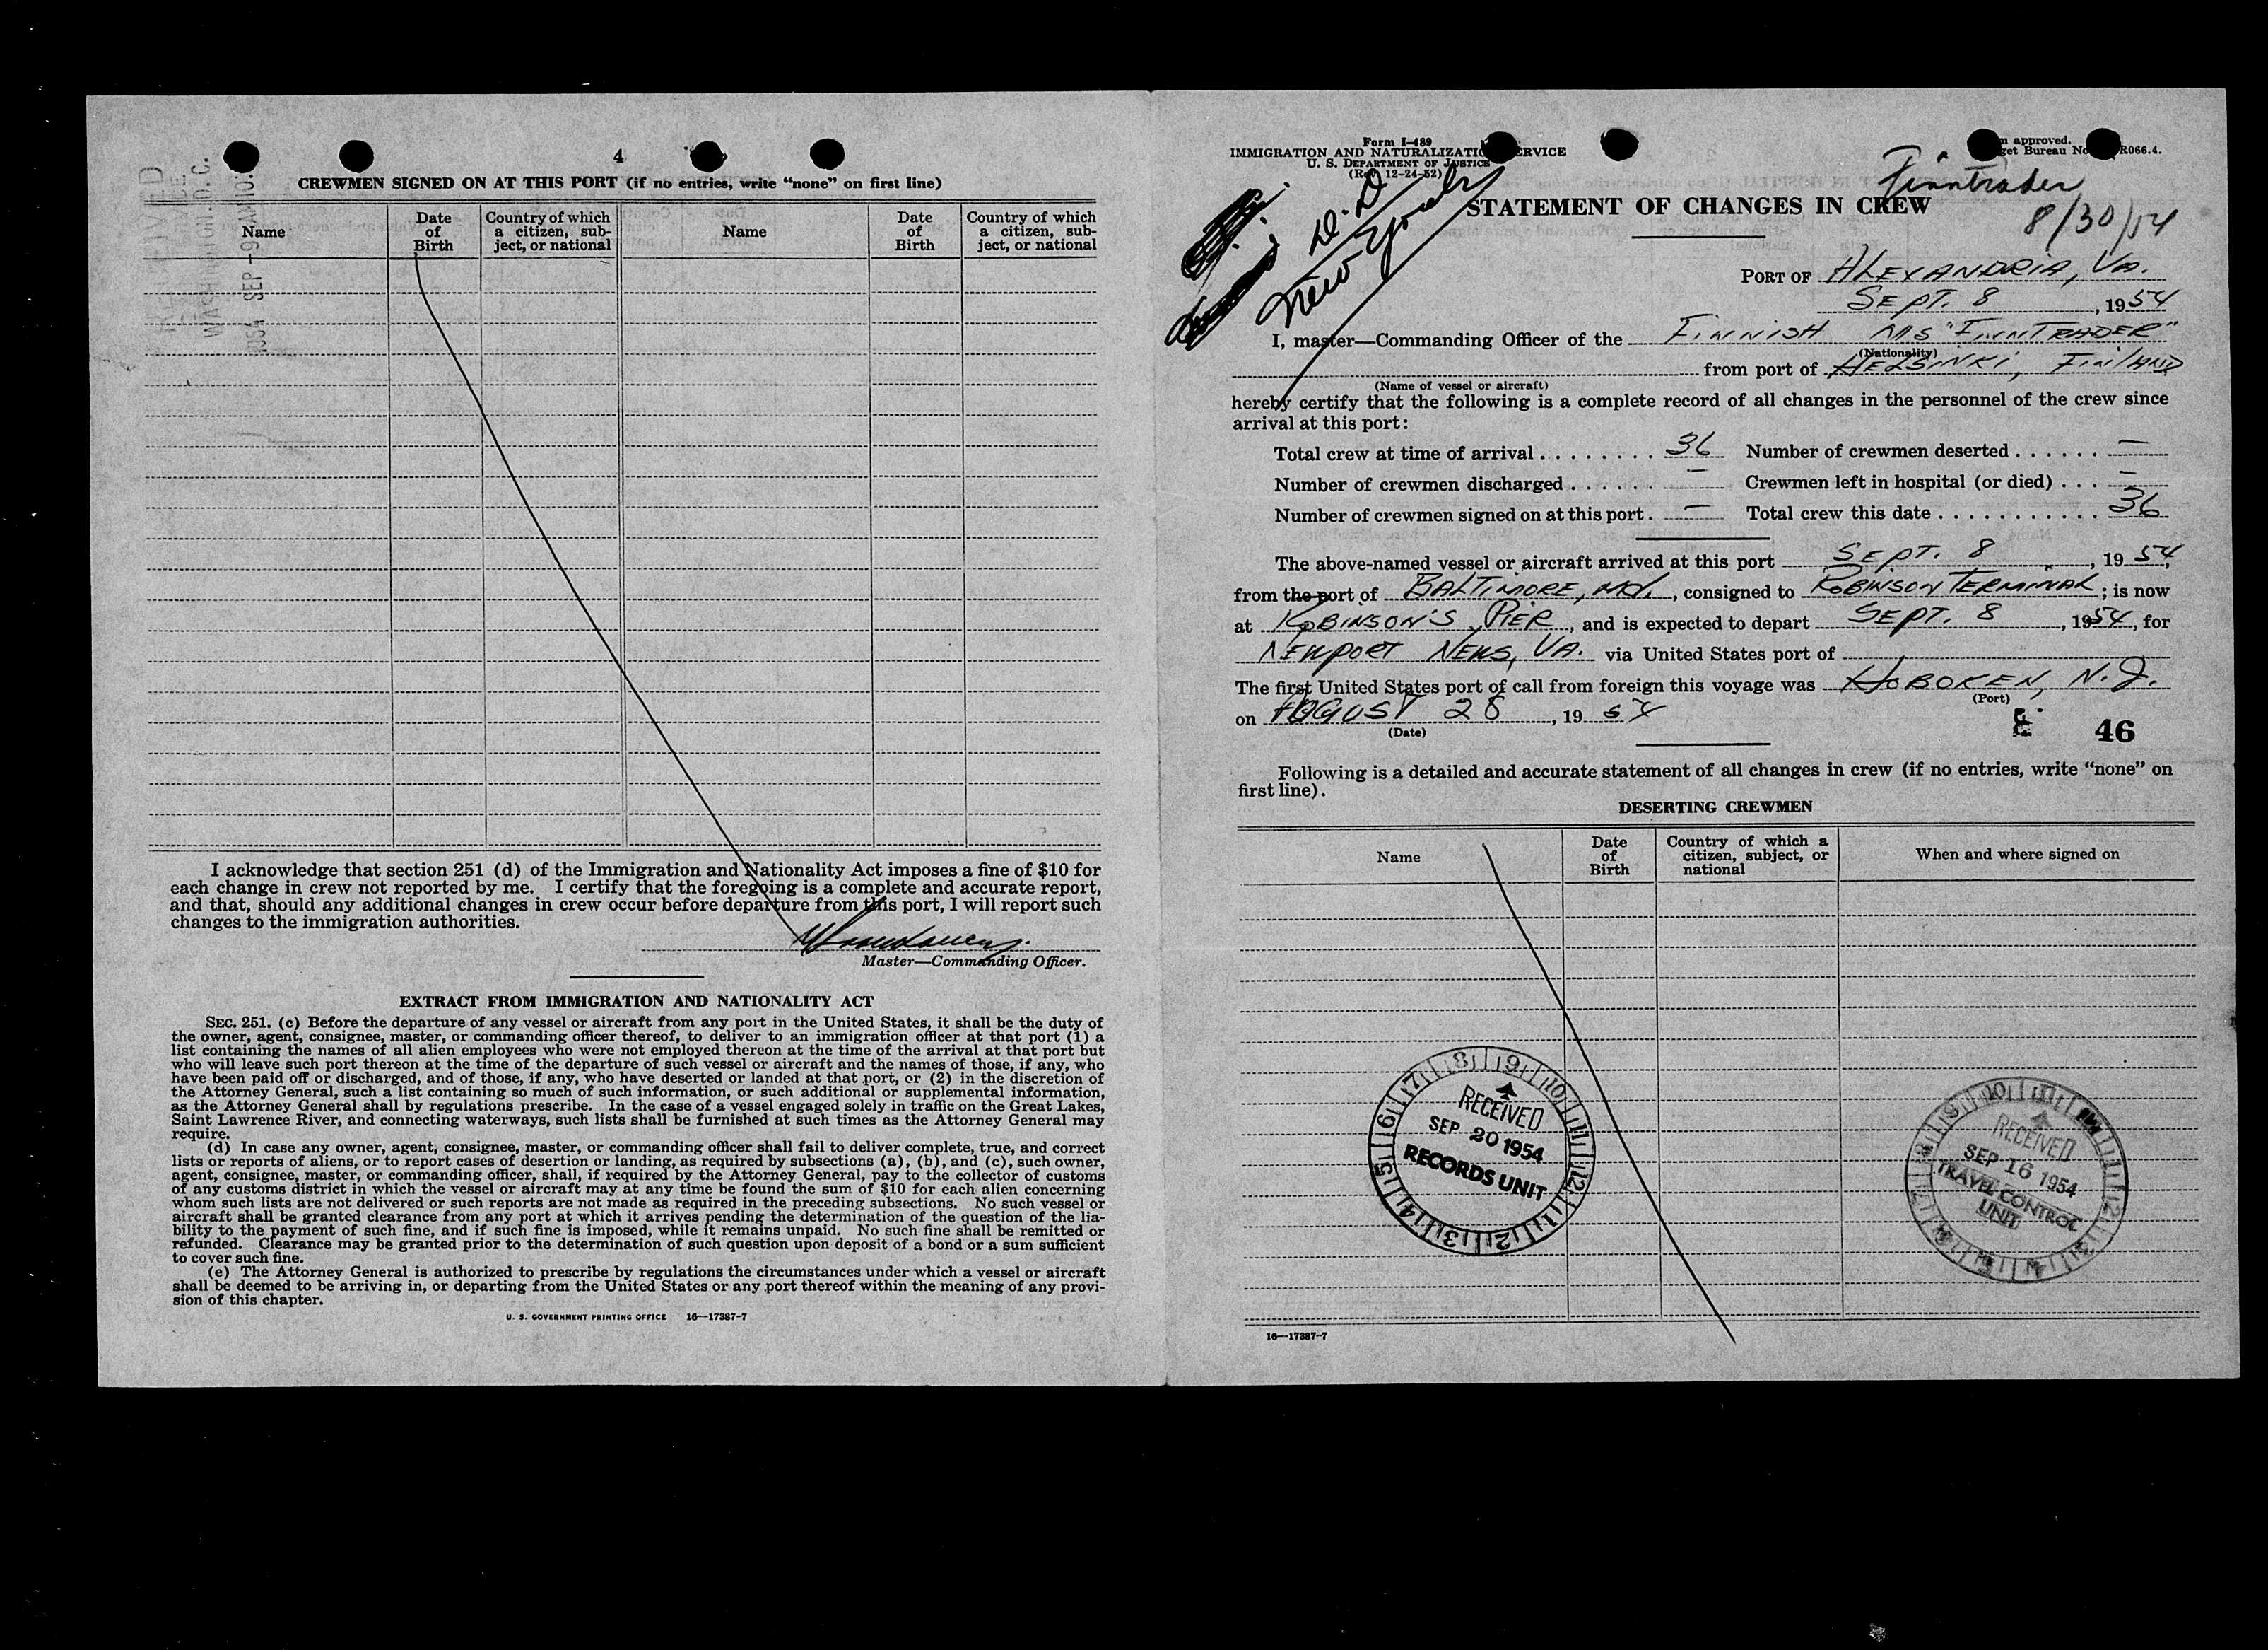 4
CREWMEN SIGNED ON AT THIS PORT (if no entries, write “none” on first line)
Name
Date of Birth
Country of which a citizen, subject, or national
Name
Date of Birth
Country of which a citizen, subject, or national
WASHINGTON, D. C.
1954 SEP -9
I acknowledge that section 251 (d) of the Immigration and Nationality Act imposes a fine of $10 for
each change in crew not reported by me. I certify that the foregoing is a complete and accurate report,
and that, should any additional changes in crew occur before departure from this port, I will report such
changes to the immigration authorities.
Master—Commanding Officer.
EXTRACT FROM IMMIGRATION AND NATIONALITY ACT
SEC. 251. (c) Before the departure of any vessel or aircraft from any port in the United States, it shall be the duty of
the owner, agent, consignee, master, or commanding officer thereof, to deliver to an immigration officer at that port (1) a
list containing the names of all alien employees who were not employed thereon at the time of the arrival at that port but
who will leave such port thereon at the time of the departure of such vessel or aircraft and the names of those, if any, who
have been paid off or discharged, and of those, if any, who have deserted or landed at that port, or (2) in the discretion of
the Attorney General, such a list containing so much of such information, or such additional or supplemental information,
as the Attorney General shall by regulations prescribe. In the case of a vessel engaged solely in traffic on the Great Lakes,
Saint Lawrence River, and connecting waterways, such lists shall be furnished at such times as the Attorney General may
require.
(d) In case any owner, agent, consignee, master, or commanding officer shall fail to deliver complete, true, and correct
lists or reports of aliens, or to report cases of desertion or landing, as required by subsections (a), (b), and (c), such owner,
agent, consignee, master, or commanding officer, shall, if required by the Attorney General, pay to the collector of customs
of any customs district in which the vessel or aircraft may at any time be found the sum of $10 for each alien concerning
whom such lists are not delivered or such reports are not made as required in the preceding subsections. No such vessel or
aircraft shall be granted clearance from any port at which it arrives pending the determination of the question of the lia-
bility to the payment of such fine, and if such fine is imposed, while it remains unpaid. No such fine shall be remitted or
refunded. Clearance may be granted prior to the determination of such question upon deposit of a bond or a sum sufficient
to cover such fine.
(e) The Attorney General is authorized to prescribe by regulations the circumstances under which a vessel or aircraft
shall be deemed to be arriving in, or departing from the United States or any port thereof within the meaning of any provi-
sion of this chapter.
U. S. GOVERNMENT PRINTING OFFICE 16—17387-7
Form I-489
IMMIGRATION AND NATURALIZATION SERVICE
U. S. DEPARTMENT OF JUSTICE
(Rev. 12-24-52)
approved.
Bureau No. R066.4.
D.D
New York
Finntrader
8/30/54
STATEMENT OF CHANGES IN CREW
PORT OF ALEXANDRIA, VA.
SEPT. 8, 1954
I, master—Commanding Officer of the FINNISH MS "FINNTRADER"
(Nationality)
from port of HELSINKI, FINLAND
(Name of vessel or aircraft)
hereby certify that the following is a complete record of all changes in the personnel of the crew since
arrival at this port:
Total crew at time of arrival . . . . . . . . 36 Number of crewmen deserted . . . . . . —
Number of crewmen discharged . . . . . . — Crewmen left in hospital (or died) . . . —
Number of crewmen signed on at this port . — Total crew this date . . . . . . . . . . . 36
The above-named vessel or aircraft arrived at this port SEPT. 8, 1954,
from the port of BALTIMORE, MD., consigned to ROBINSON TERMINAL; is now
at ROBINSON'S PIER, and is expected to depart SEPT. 8, 1954, for
NEWPORT NEWS, VA. via United States port of
The first United States port of call from foreign this voyage was HOBOKEN, N.J.
(Port)
on AUGUST 28, 1954
(Date)
46
Following is a detailed and accurate statement of all changes in crew (if no entries, write “none” on
first line).
DESERTING CREWMEN
Name
Date of Birth
Country of which a citizen, subject, or national
When and where signed on
RECEIVED
SEP 20 1954
RECORDS UNIT
RECEIVED
SEP 16 1954
TRAVEL CONTROL
UNIT
16—17387-7